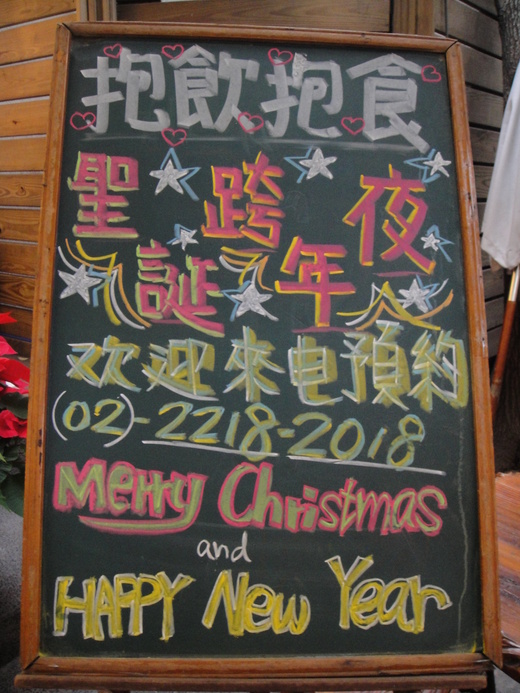 抱飲抱食
聖誕 跨年夜
欢迎來电預約
(02)-2218-2018
Merry Christmas
and
HAPPY New Year